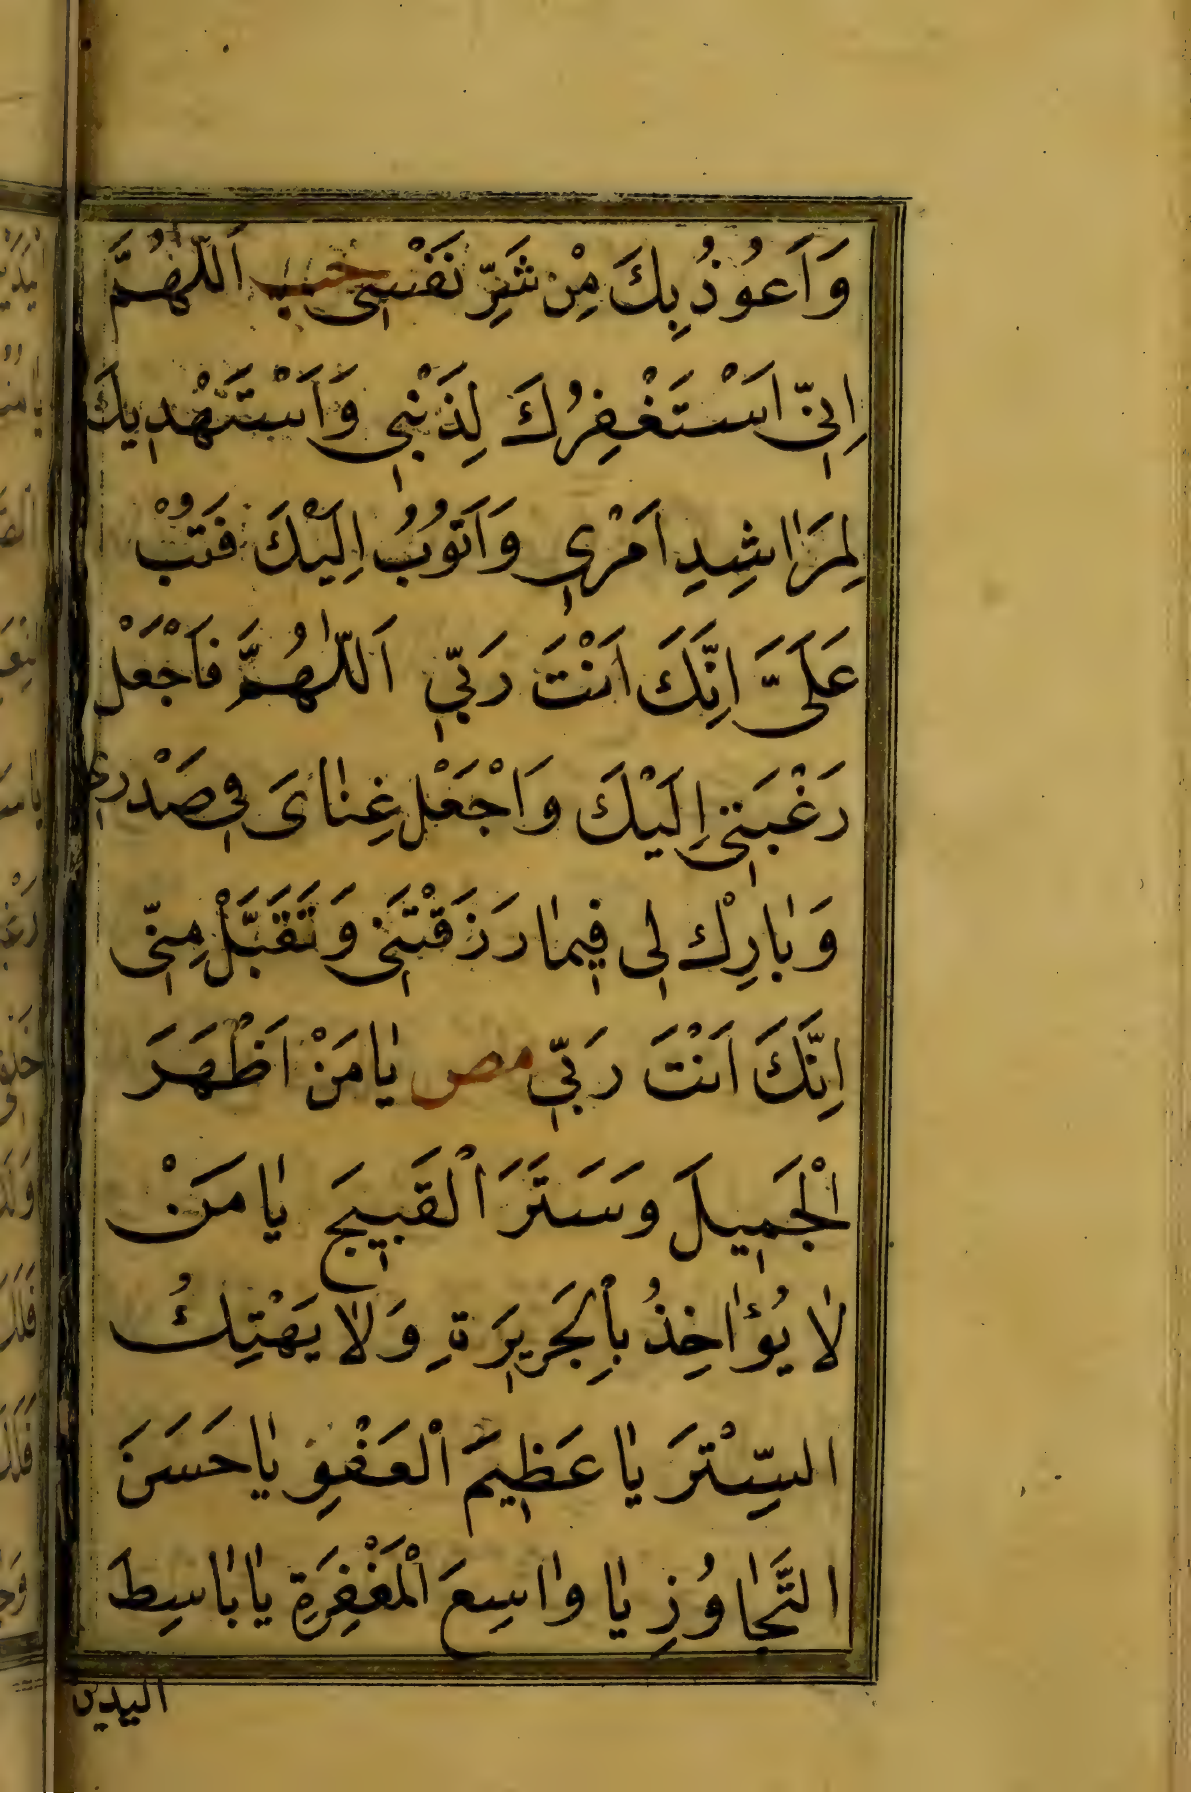 وَاَعُوذُ بِكَ مِنْ شَرِّ نَفْسِي حب اَللّٰهُمَّ
اِنِّي اَسْتَغْفِرُكَ لِذَنْبِي وَاَسْتَهْدِيكَ
لِمَرَاشِدِ اَمْرِي وَاَتُوبُ اِلَيْكَ فَتُبْ
عَلَيَّ اِنَّكَ اَنْتَ رَبِّي اَللّٰهُمَّ فَاجْعَلْ
رَغْبَتِي اِلَيْكَ وَاجْعَلْ غِنَايَ فِي صَدْرِي
وَبَارِكْ لِي فِيمَا رَزَقْتَنِي وَتَقَبَّلْ مِنِّي
اِنَّكَ اَنْتَ رَبِّي مص يَا مَنْ اَظْهَرَ
الْجَمِيلَ وَسَتَرَ الْقَبِيحَ يَا مَنْ
لَا يُؤَاخِذُ بِالْجَرِيرَةِ وَلَا يَهْتِكُ
السِّتْرَ يَا عَظِيمَ الْعَفْوِ يَا حَسَنَ
التَّجَاوُزِ يَا وَاسِعَ الْمَغْفِرَةِ يَا بَاسِطَ
اليدين